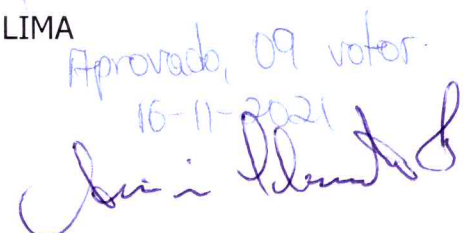 LIMA
Aprovado, 09 votos.
16-11-2021